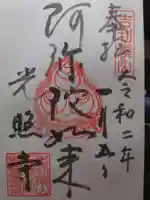 奉拝
令和二年
一月五日
阿弥陀如来
光照寺